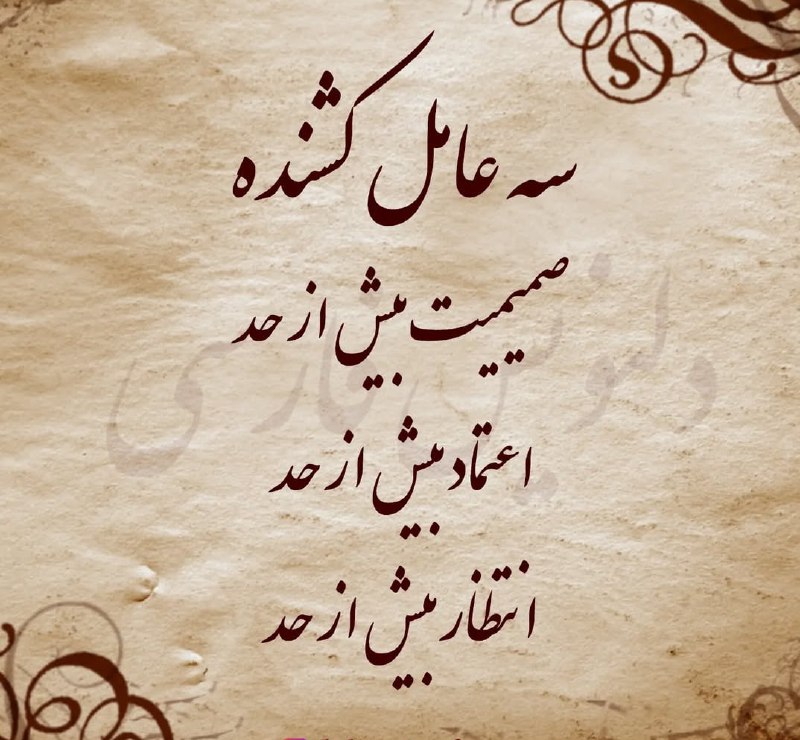 سه عامل کشنده
صمیمیت بیش از حد
اعتماد بیش از حد
انتظار بیش از حد
دلنویس فارسی